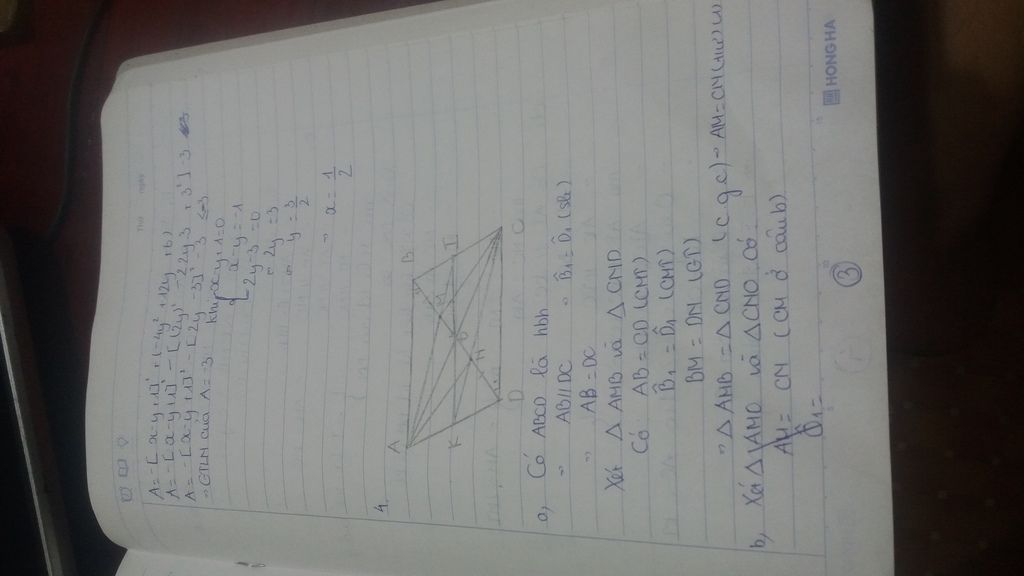 Thứ ngày
A = -[x-y+1]² + (-4y² + 12y + b)
A = -[x-y+1]² - [(2y)² - 2.2y.3 + 3²] - 3
A = -[x-y+1]² - [2y-3]² - 3 ≤ -3
⇒ GTLN của A = -3 khi x-y+1=0
x-y=-1
2y-3=0
⇒ 2y = 3
⇒ y = 3/2
⇒ x = 1/2
4.
A B
K O I
D C
a, Có ABCD là hbh
⇒ AB//DC ⇒ B̂1 = D̂1 (slt)
⇒ AB = DC
Xét Δ AMB và Δ CND
Có AB = CD (CMT)
B̂1 = D̂1 (CMT)
BM = DN (GT)
⇒ Δ AMB = Δ CND (c g c) ⇒ AM = CN
b, Xét Δ AMO và Δ CNO Có
AM = CN (CM ở câu b)
Ô1 =
3
HONG HA